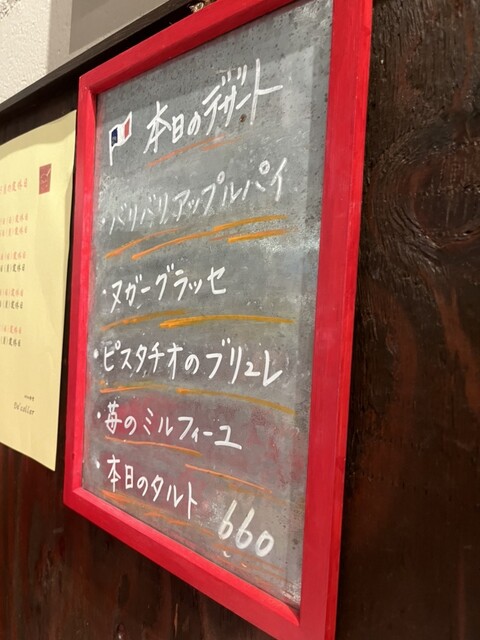 本日のデザート
・バリバリアップルパイ
・ヌガーグラッセ
・ピスタチオのブリュレ
・苺のミルフィーユ
・本日のタルト 660